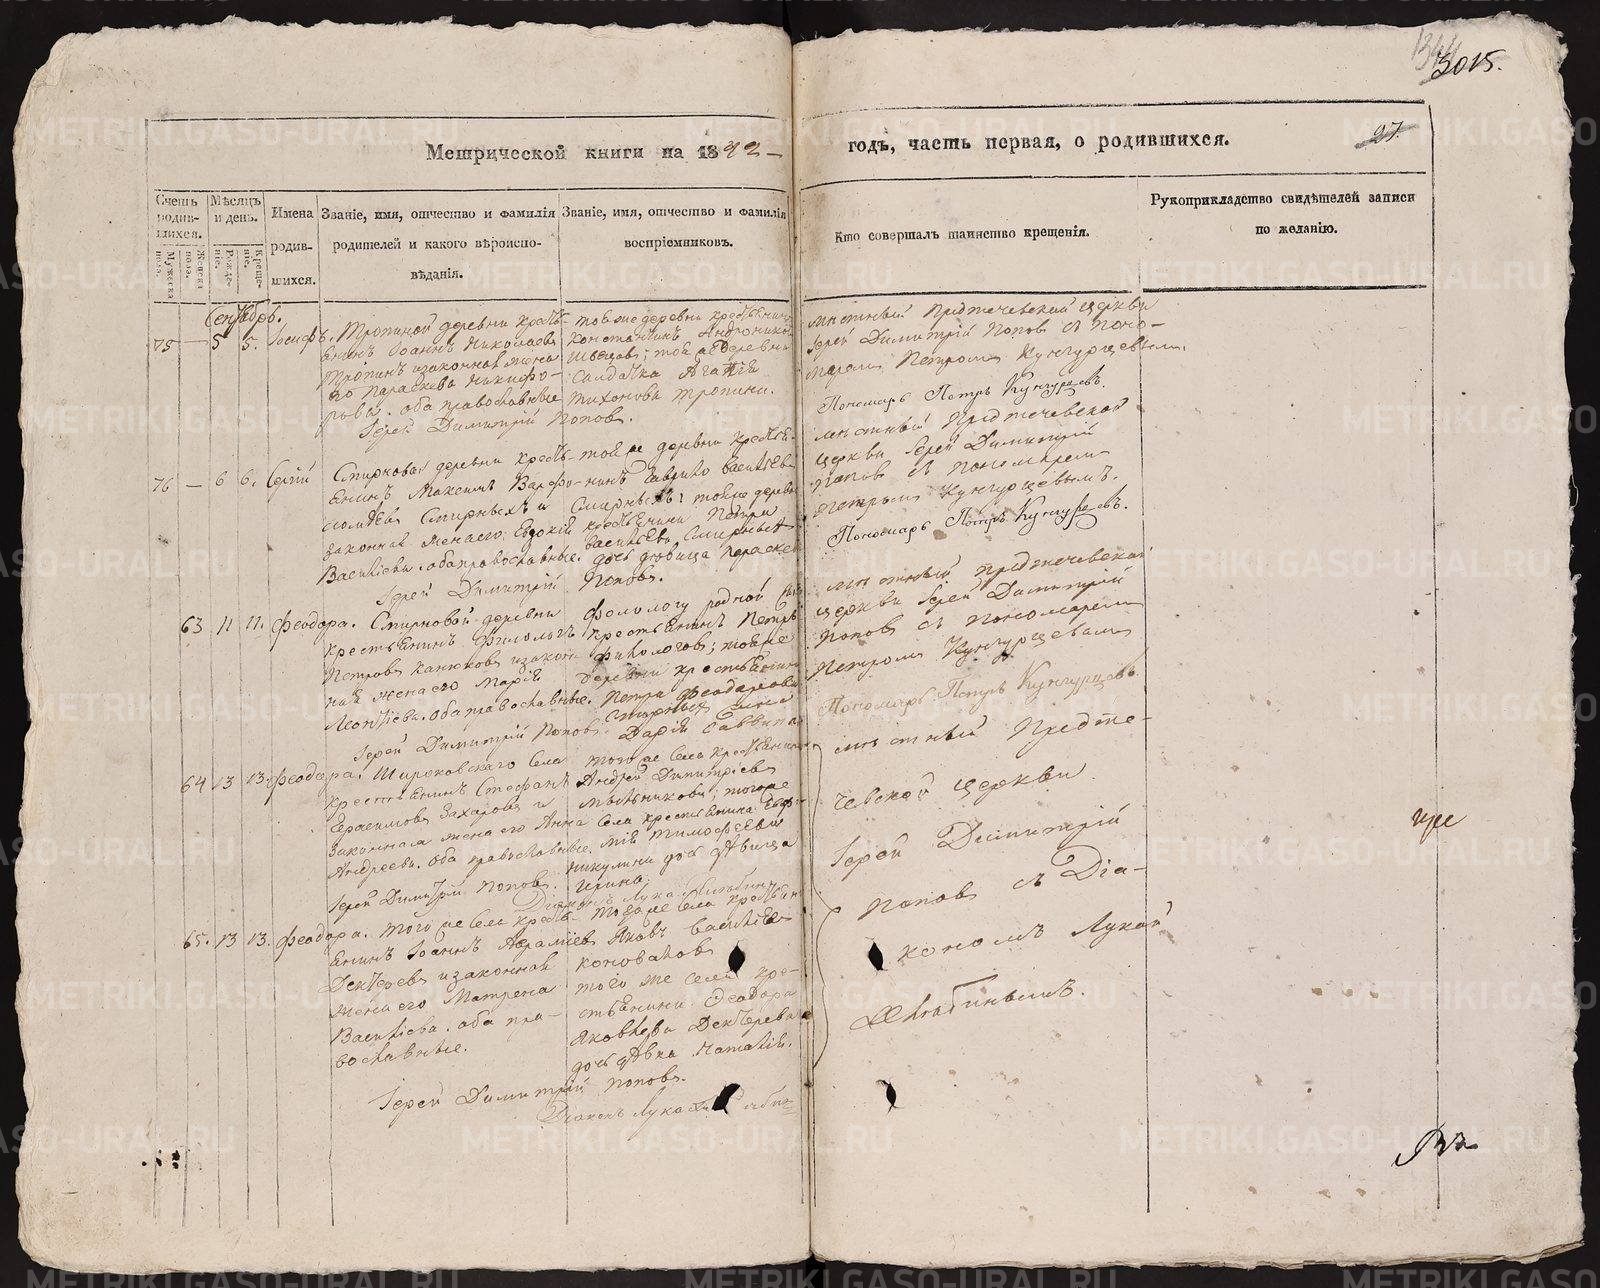 3015.
27.
Метрической книги на 1842
годъ, часть первая, о родившихся.
Счетъ родив-шихся.
Мужеска полa.
Женска полa.
Мѣсяцъ и день.
Рожде-ніе.
Креще-ніе.
Имена родив-шихся.
Званіе, имя, отчество и фамилія
родителей и какого вѣроиспо-
вѣданія.
Званіе, имя, отчество и фамилія
воспріемниковъ.
Кто совершалъ таинство крещенія.
Рукоприкладство свидѣтелей записи
по желанію.
Сентябрь.
75 — 5 5. Іосифъ.
Тропиной деревни кресть-
янинъ Іоаннъ Николаевъ
Тропинъ и законная жена
его Параскева Никифо-
рова. оба православные
Іерей Димитрій Поповъ.
той же деревни крестьянинъ
Константинъ Андрониковъ
Швецовъ; той же деревни
солдатка Агафія
Тихонова Тропина.
мѣстный Предтечевской церкви
Іерей Димитрій Поповъ съ поно-
маремъ Петромъ Кунгурцевымъ.
Пономарь Петръ Кунгурцевъ.
76 — 6 6. Сергій
Смирновой деревни кресть-
янинъ Максимъ Варфо-
ломѣевъ Смирныхъ и
законная жена его Евдокія
Васильева. оба православные.
Іерей Димитрій Поповъ.
той же деревни крестья-
нинъ Гаврило Васильевъ
Смирныхъ; той же деревни
крестьянина Петра
Васильева Смирныхъ
дочь девица Параскева
мѣстный Предтечевской
церкви Іерей Димитрій
Поповъ съ пономаремъ
Петромъ Кунгурцевымъ.
Пономарь Петръ Кунгурцевъ.
63 11 11. Феодора.
Смирновой деревни
крестьянинъ Филологъ
Петровъ Канюковъ и закон-
ная жена его Марія
Леонтіева. оба православные.
Іерей Димитрій Поповъ.
Филологу родной
крестьянинъ Петръ
Филологовъ; той же
деревни крестьянина
Петра Феодорова
Смирныхъ жена
Дарія Саввина
мѣстный Предтечевской
церкви Іерей Димитрій
Поповъ съ пономаремъ
Петромъ Кунгурцевымъ
Пономарь Петръ Кунгурцевъ
64 13 13. Феодора.
Широковскаго села
крестьянинъ Стефанъ
Герасимовъ Захаровъ и
законная жена его Анна
Андреева. оба православные.
Іерей Димитрій Поповъ.
того же села крестьянинъ
Андрей Димитріевъ
Мыльниковъ; того же
села крестьянина
Тимофеева
Никулина дочь дѣвица
Ирина.
Діаконъ Лука
мѣстный Предте-
чевской церкви
Іерей Димитрій
Поповъ съ Діа-
кономъ Лукой
65. 13 13. Феодора.
того же села кресть-
янинъ Іоаннъ Аврамiевъ
Дектеревъ и законная
жена его Матрена
Васильева. оба пра-
вославные.
Іерей Димитрій Поповъ.
того же села крестьянинъ
Яковъ Васильевъ
Коноваловъ
того же села кре-
стьянина Феодора
Яковлева Дектерева
дочь дѣвка Наталія.
Діаконъ Лука